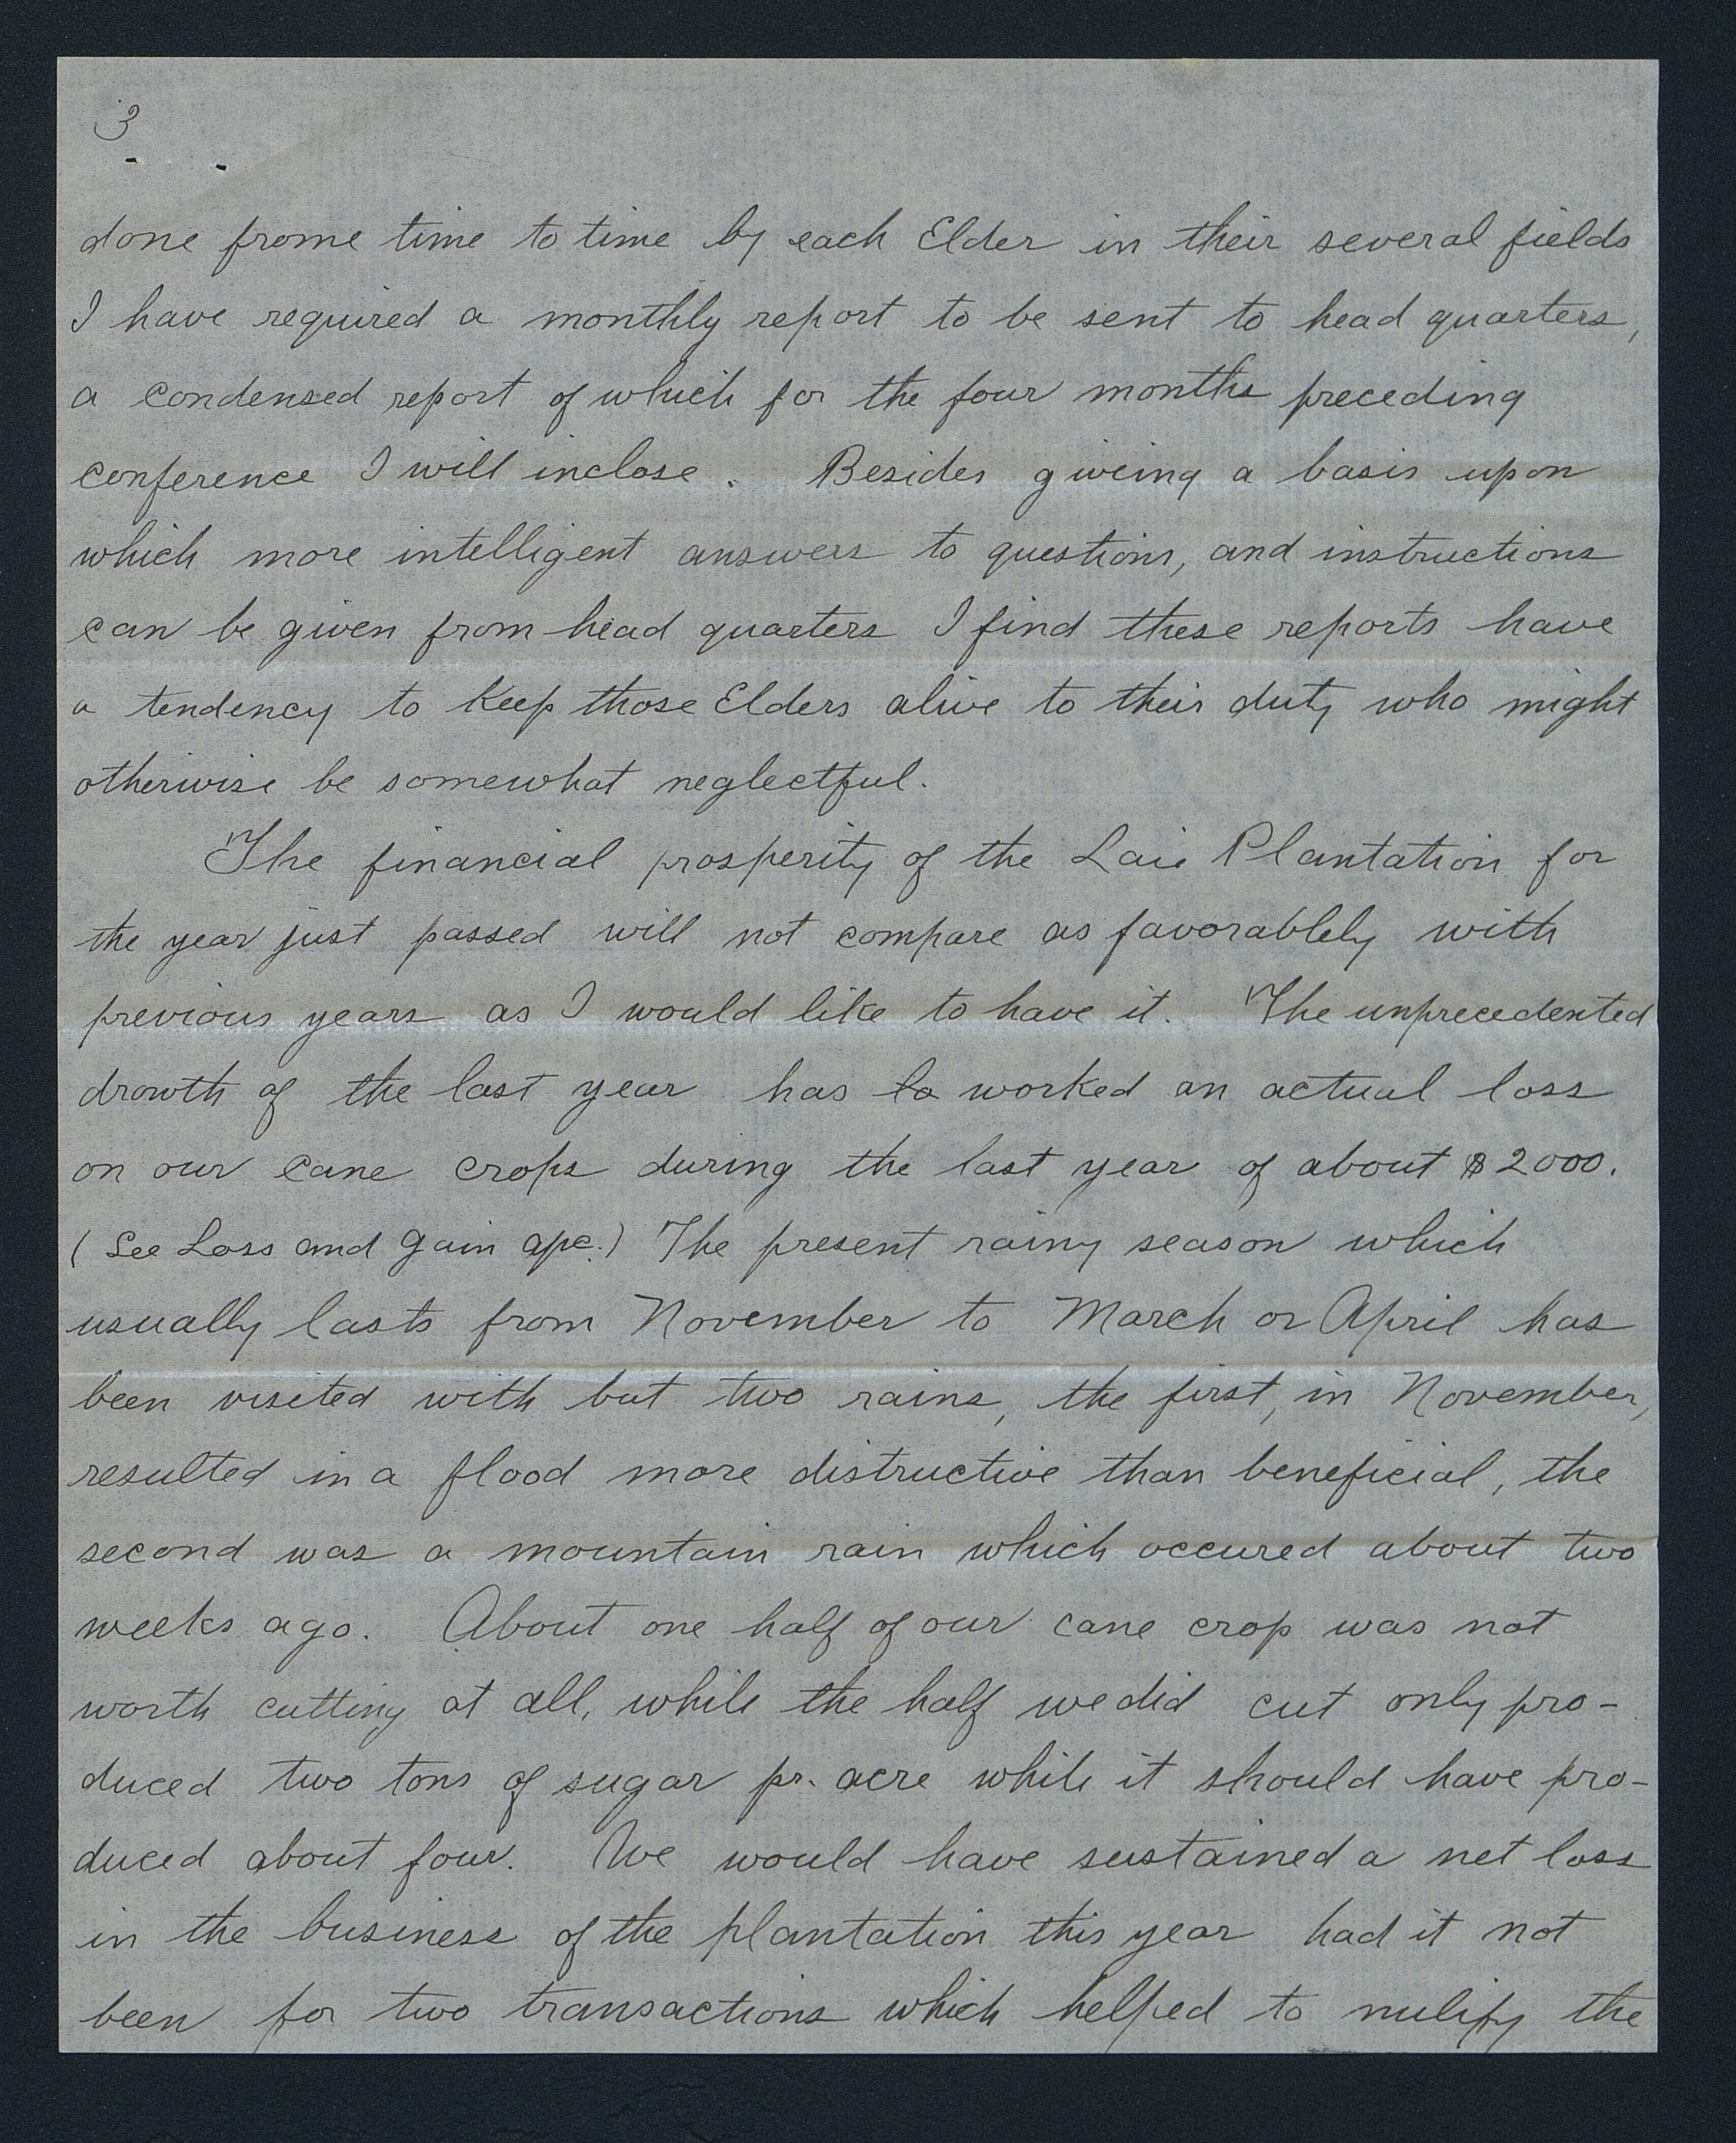 3
done frome time to time by each Elder in their several fields
I have required a monthly report to be sent to head quarters,
a condensed report of which for the four months preceding
conference I will inclose. Besides giveing a basis upon
which more intelligent answers to questions, and instructions
can be given from head quarters I find these reports have
a tendency to keep those Elders alive to their duty who might
otherwise be somewhat neglectful.
The financial prosperity of the Laie Plantation for
the year just passed will not compare as favorablely with
previous years as I would like to have it. The unprecedented
drowth of the last year has lo worked an actual loss
on our cane crops during the last year of about $2000.
(See Loss and gain apc.) The present rainy season which
usually lasts from November to March or April has
been visited with but two rains, the first, in November,
resulted in a flood more distructive than beneficial, the
second was a mountain rain which occured about two
weeks ago. About one half of our cane crop was not
worth cutting at all, while the half we did cut only pro-
duced two tons of sugar pr. acre while it should have pro-
duced about four. We would have sustained a net loss
in the business of the plantation this year had it not
been for two transactions which helped to nulify the